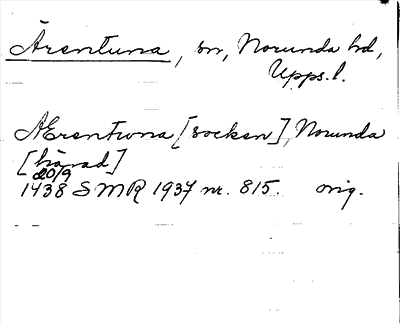 Ärentuna, sn, Norunda hd,
Upps. l.
Ærentwna [socken], Norunda
[härad]
20/9
1438 SMR 1937 nr. 815. orig.